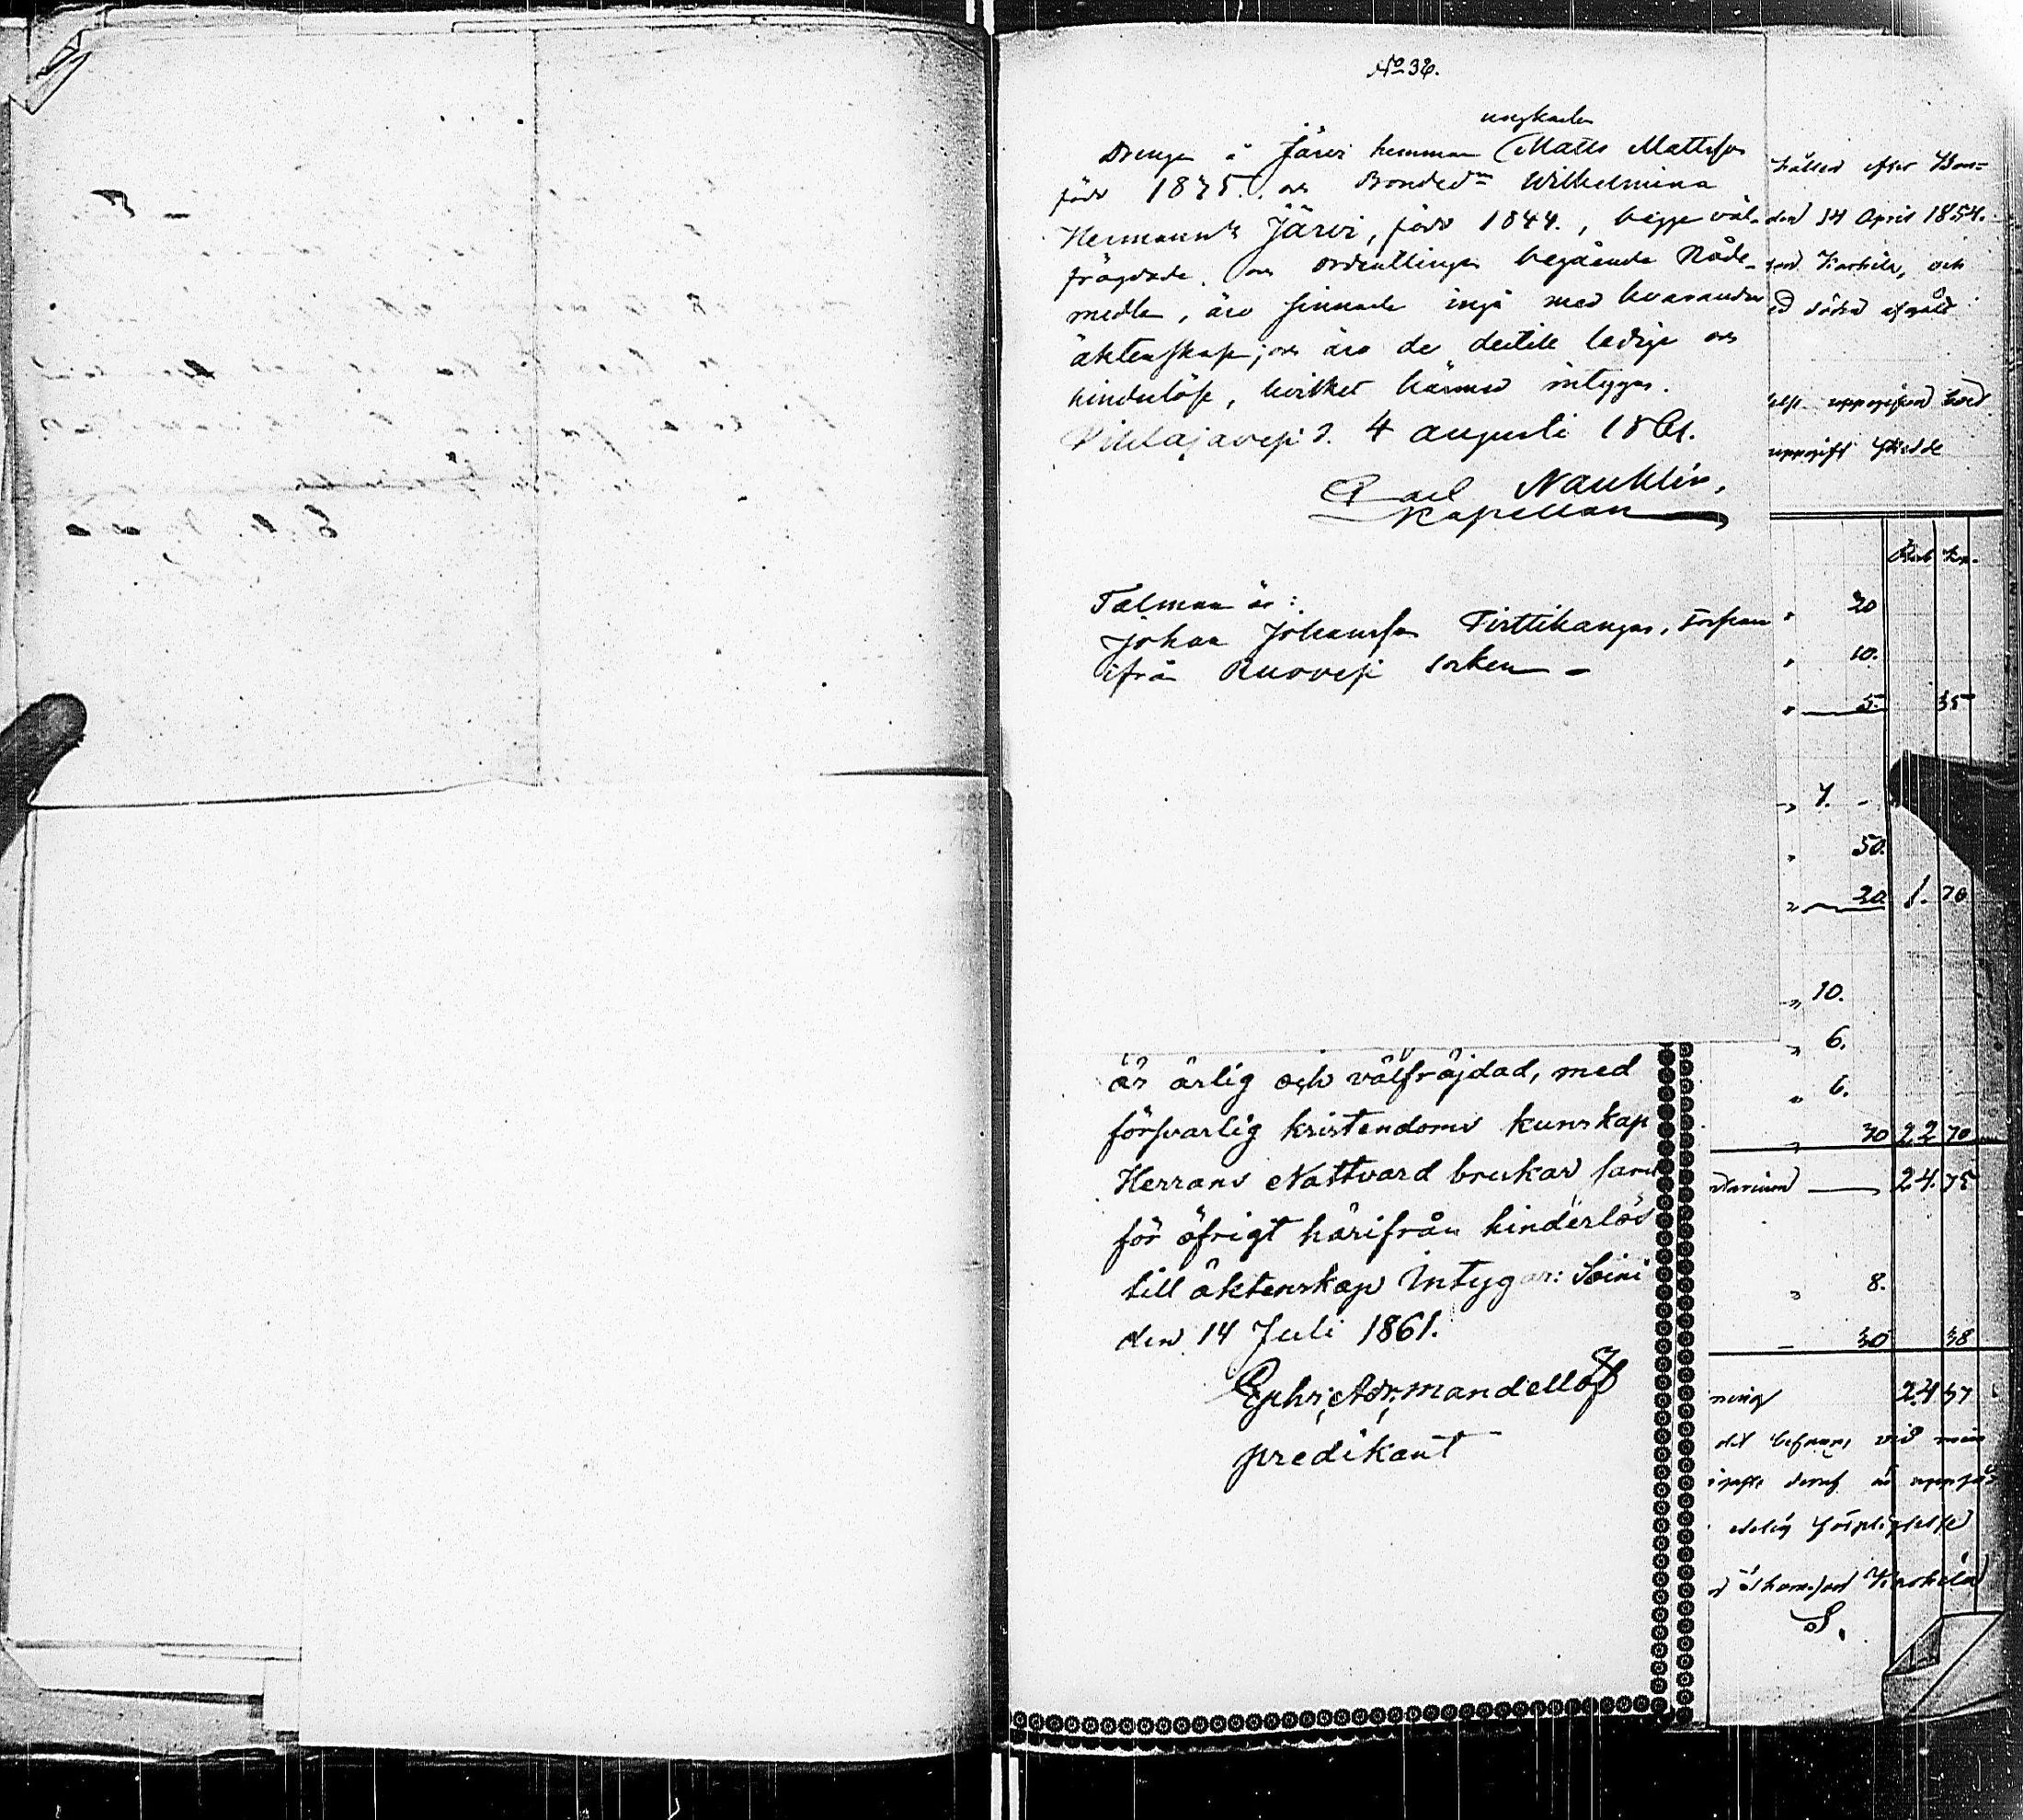 No 36.
ungkarlen
Drengen å Järvi hemman Matts Mattsson
född 1835. och Bondedn Wilhelmina
Hermannsdr Järvi, född 1844., begge väl-
frägdade och ordentligen begående Nåde-
medlen, äro sinnade ingå med hvarandra
äktenskap; och äro de dertill ledige och
hinderlöse, hvilket härmed intygas.
Pihlajavesi d. 4 augusti 1861.
Carl Nauklér,
Kapellan
Talman är:
Johan Johansson Pirttikangas, torpare
ifrån Ruovesi socken –
är ärlig och välfräjdad, med
försvarlig kristendoms kunskap
Herrans Nattvard brukar samt
för öfrigt härifrån hinderlös
till äktenskap Intygar: Soini
den 14 Juli 1861.
Ephr; Adr; Mandellöf
predikant
hållen efter Bon-
den 14 April 1854.
och
uppgifven
uppgift skedde
Rub Kop.
20
10.
5. 35
7. -
50.
20 1. 70
10.
6.
6.
30 22 70
24. 75
8.
30 38
24 37
det befunnits vid min
edelig förpligtelse
S.